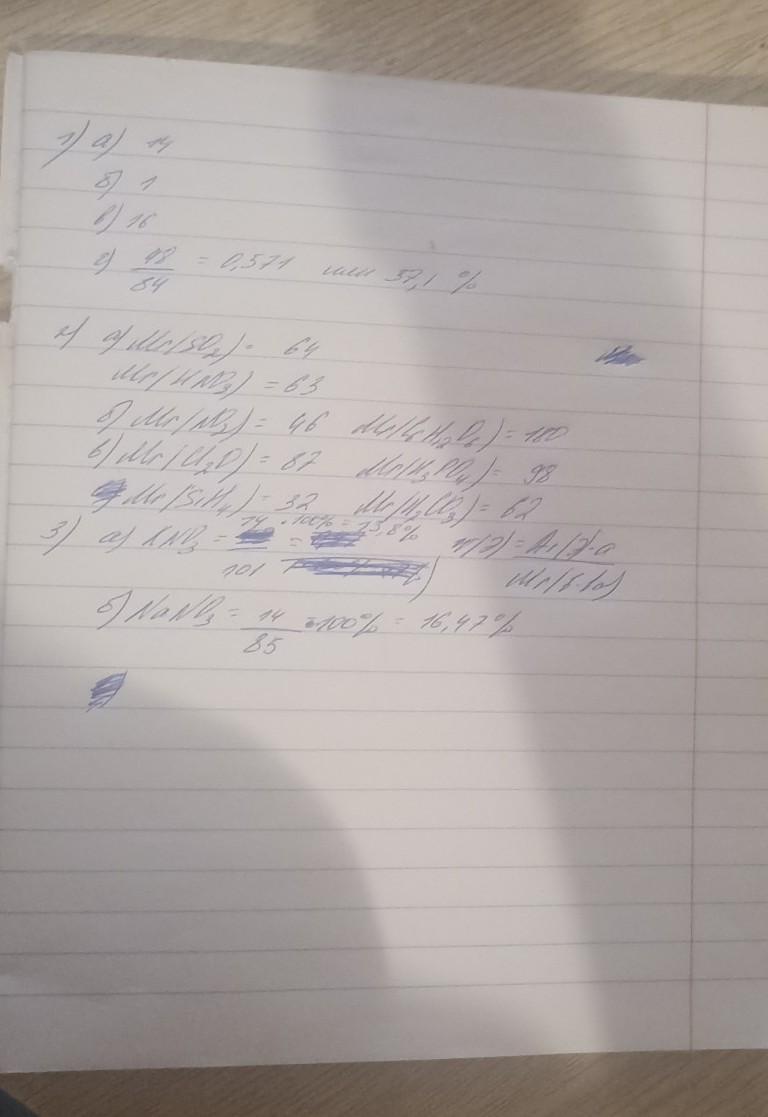 1) а) 14
б) 1
в) 16
г) 48/84 = 0,571 или 57,1 %
2) а) Mr(SO2) = 64
Mr(HNO3) = 63
б) Mr(NO2) = 46 Mr(C6H12O6) = 180
в) Mr(Cl2O) = 87 Mr(H3PO4) = 98
Mr(SiH4) = 32 Mr(H2CO3) = 62
3) а) KNO3 = 14/101 · 100% = 13,8% = Ar(Э)·a/Mr(
б) NaNO3 = 14/85 · 100% = 16,47%